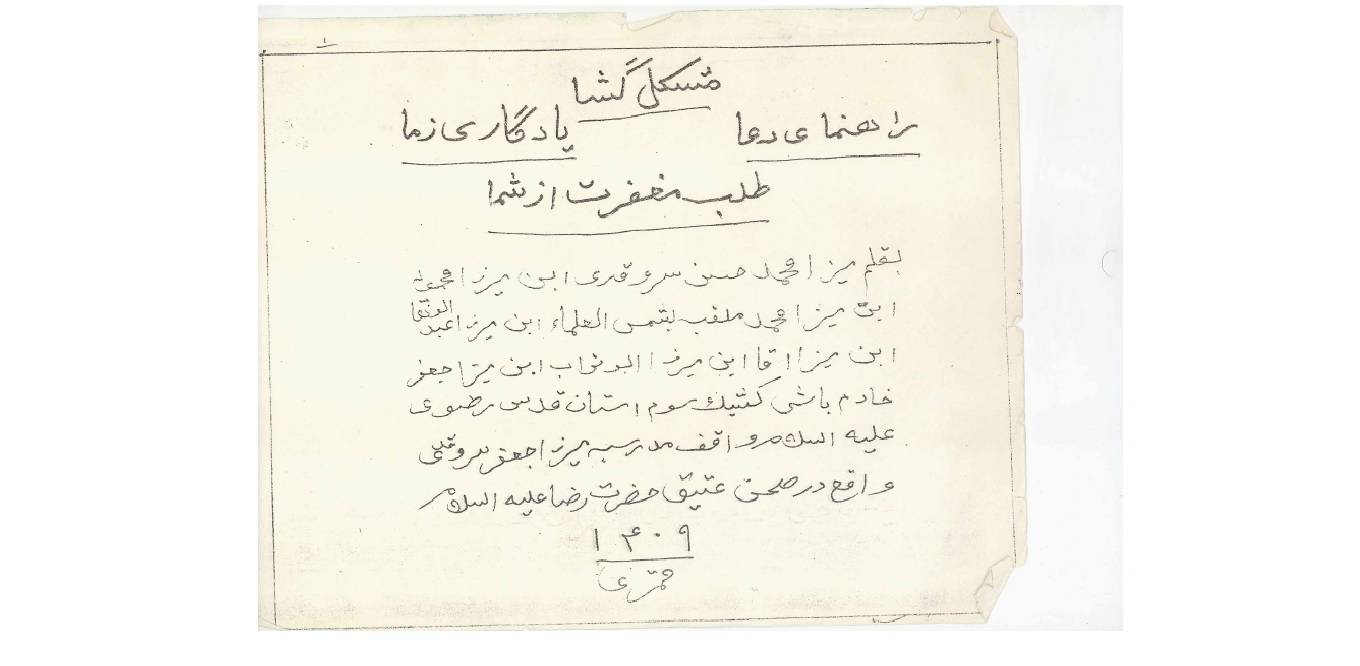 ۱
مشکل گشا
راهنمای دعا یادگاری زما
طلب مغفرت از شما
بقلم میرزا محمد حسن سروقدی ابن میرزا محمود
ابن میرزا محمد ملقب بشمس العلماء ابن میرزا عبد
ابن میرزا اقا ابن میرزا ابوتراب ابن میرزا جعفر
خادم باشی کشیک سوم استان قدس رضوی
علیه السلام واقف مدرسه میرزا جعفر سروقدی
واقع در صحن عتیق حضرت رضا علیه السلام
۱۴۰۹
قمری